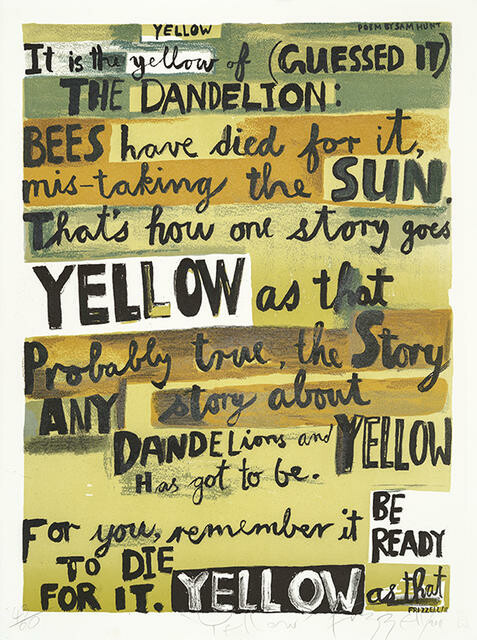 YELLOW
POEM BY SAM HUNT
It is the yellow of (GUESSED IT)
THE DANDELION:
BEES have died for it,
mis-taking the SUN.
That's how one story goes
YELLOW as that
Probably true, the Story
ANY story about
DANDELions and YELLOW
Has got to be.
For you, remember it BE
READY
TO DIE
FOR IT. YELLOW as that
FRIZZELL
Yellow Frizzell